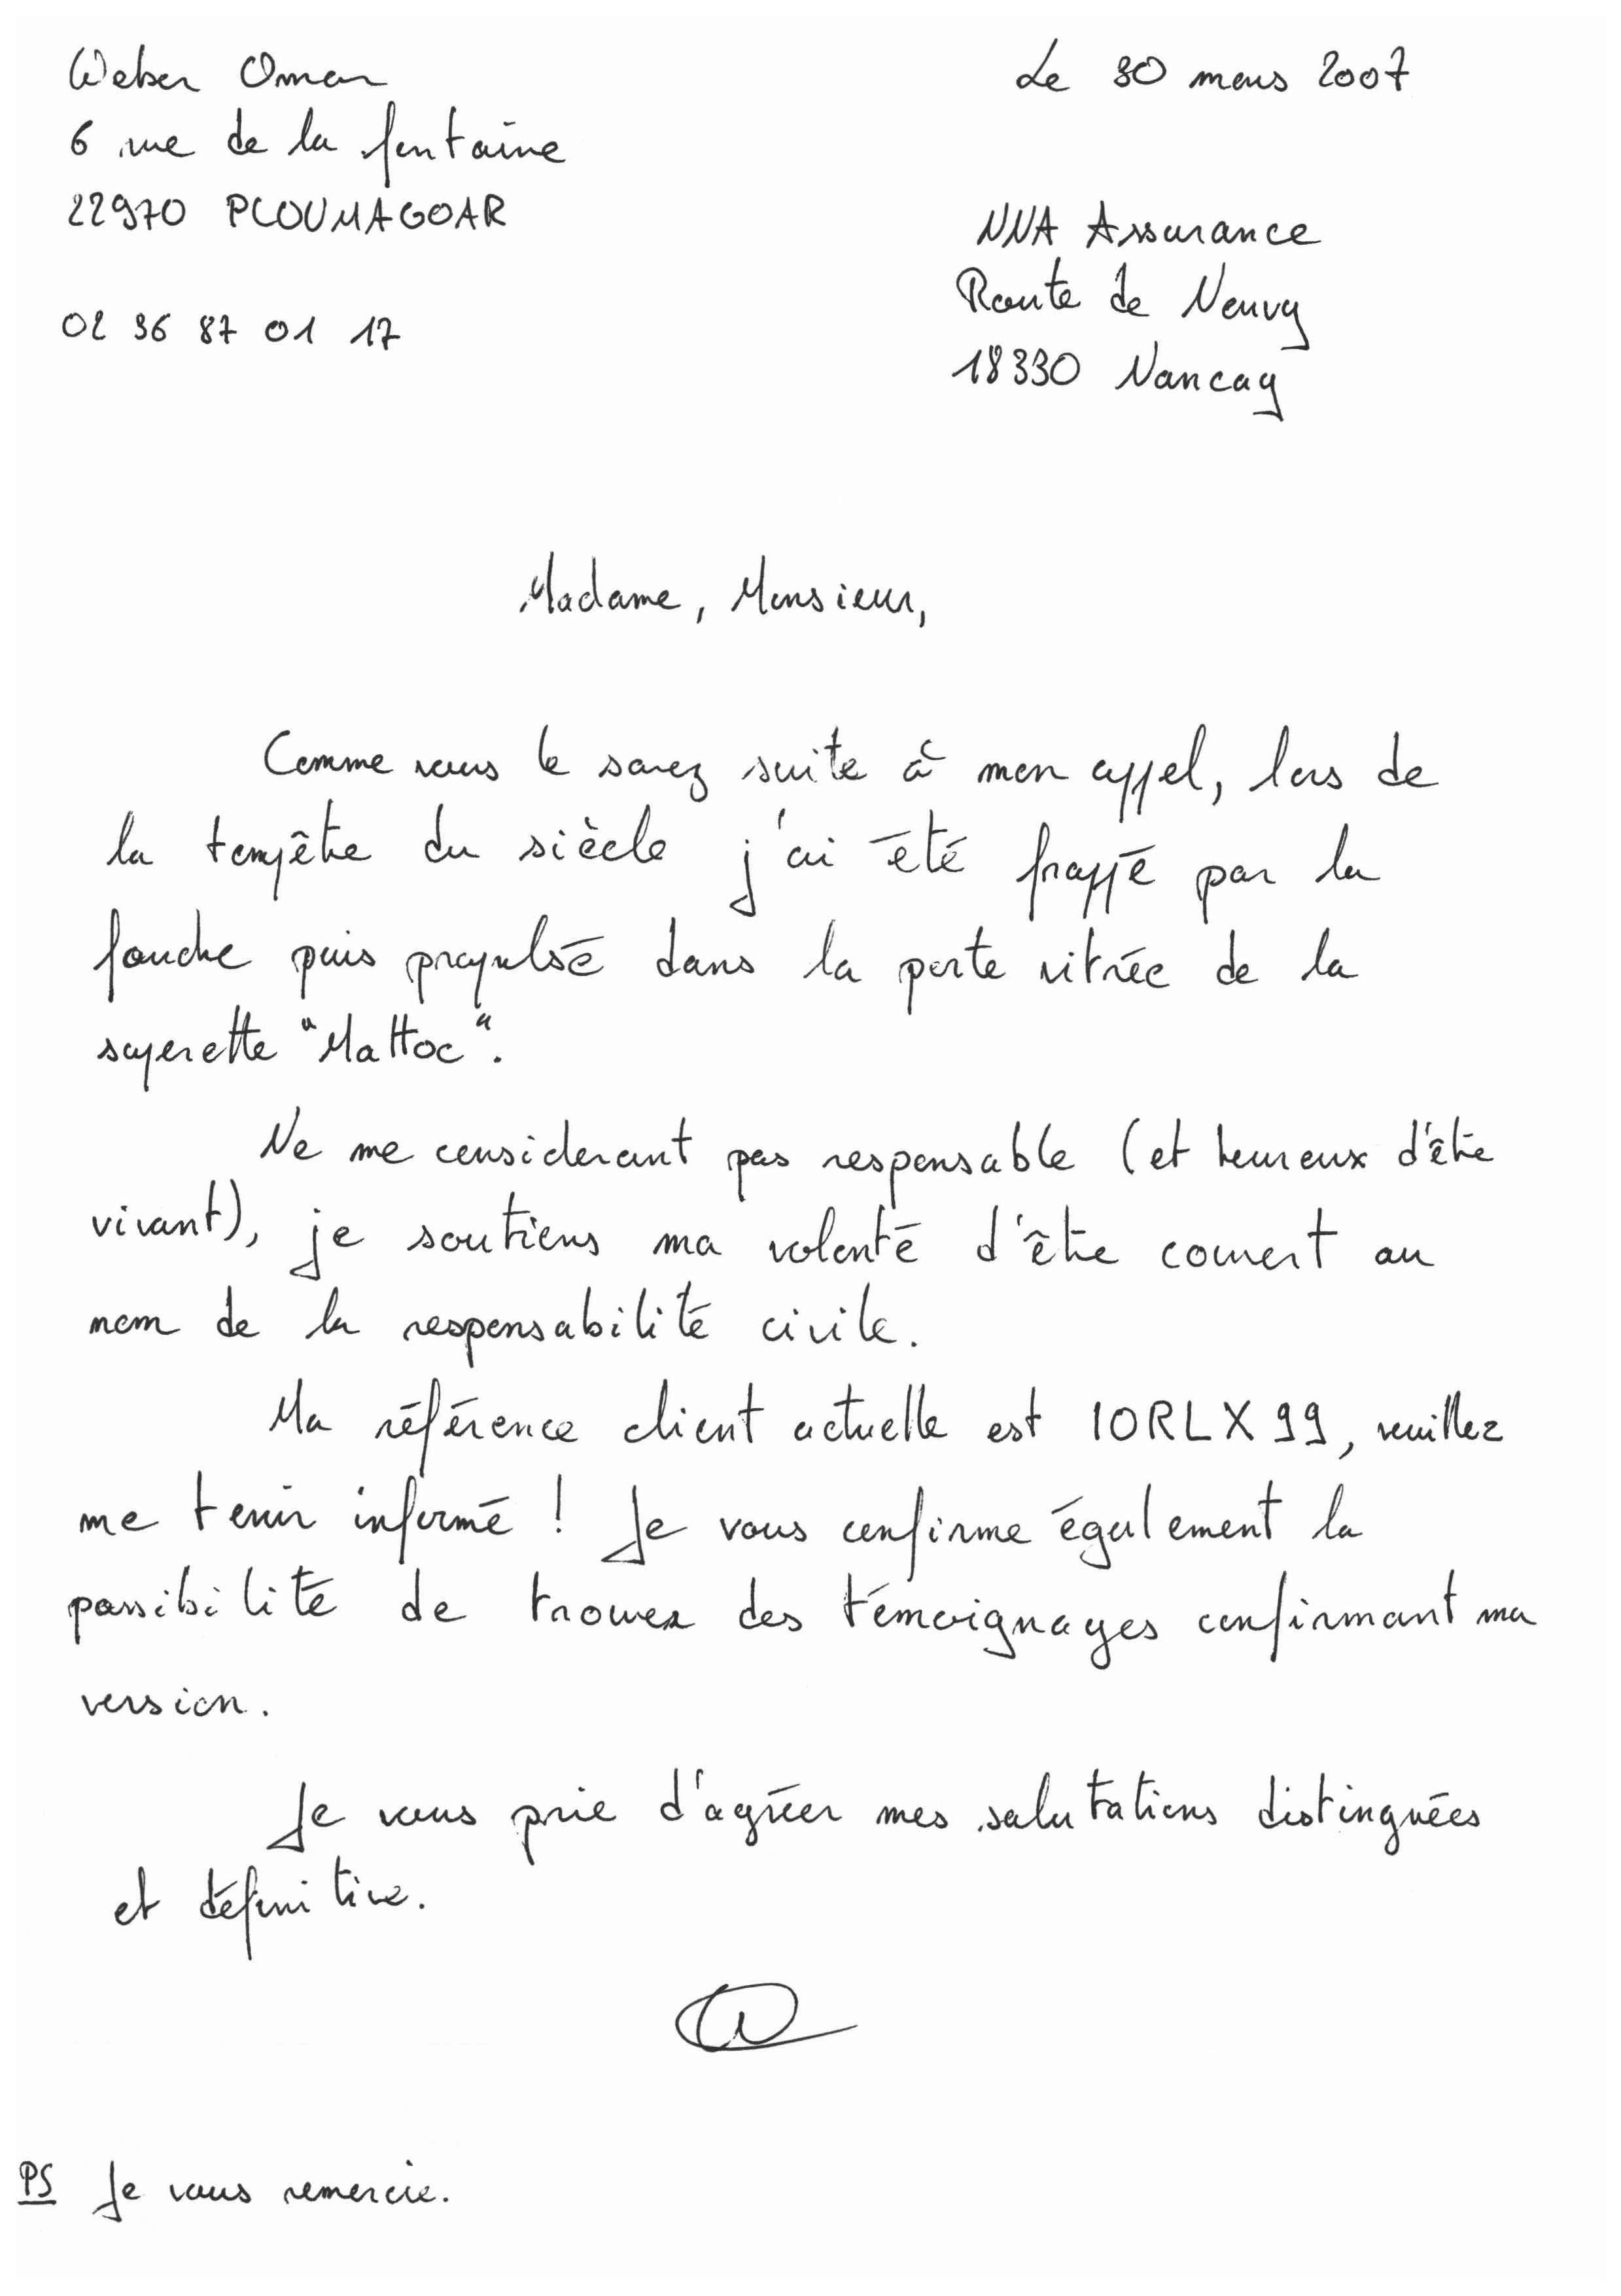 Weber Omar
6 rue de la fontaine
22970 PLOUMAGOAR
02 96 87 01 17
Le 30 mars 2007
NNA Assurance
Route de Neuvy
18330 Nancay
Madame, Monsieur,
Comme vous le savez suite à mon appel, lors de
la tempête du siècle j'ai été frappé par la
foudre puis propulsé dans la porte vitrée de la
superette "Mattoc".
Ne me considerant pas responsable (et heureux d'être
vivant), je soutiens ma volonté d'être couvert au
nom de la responsabilité civile.
Ma référence client actuelle est IORLX99, veuillez
me tenir informé ! Je vous confirme également la
possibilité de trouver des témoignages confirmant ma
version.
Je vous prie d'agréer mes salutations distinguées
et définitive.
PS Je vous remercie.